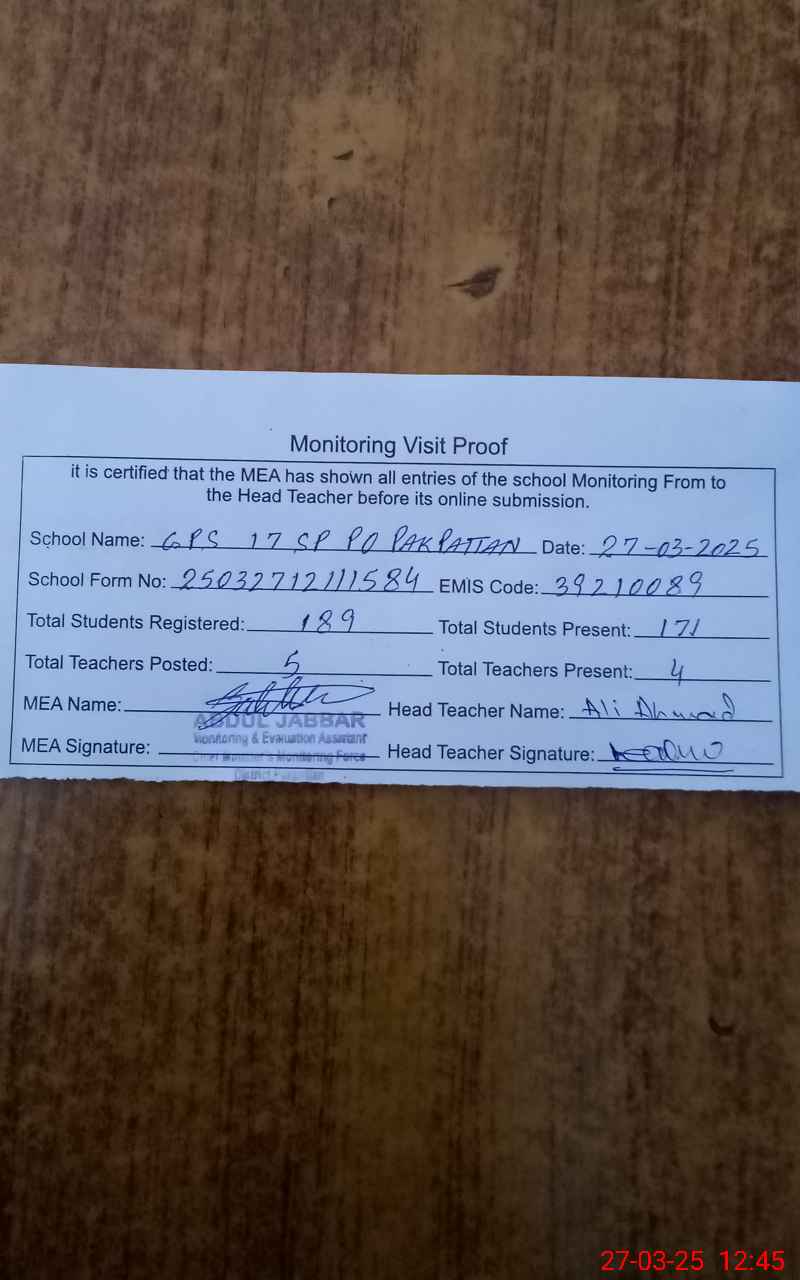 Monitoring Visit Proof
it is certified that the MEA has shown all entries of the school Monitoring From to
the Head Teacher before its online submission.
School Name: GPS 17 SP PO PAKPATTAN Date: 27-03-2025
School Form No: 25032712111584 EMIS Code: 39210089
Total Students Registered: 189 Total Students Present: 171
Total Teachers Posted: 5 Total Teachers Present: 4
MEA Name: Head Teacher Name: Ali Ahmad
ABDUL JABBAR
Monitoring & Evaluation Assistant
MEA Signature: Head Teacher Signature:
Chief Minister's Monitoring Force
District
27-03-25 12:45